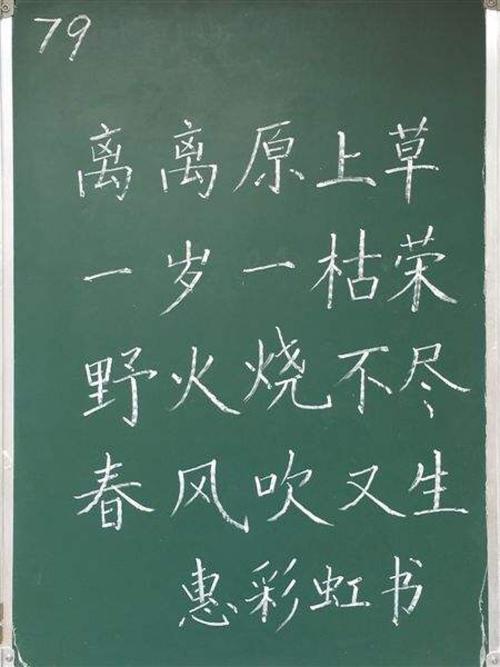 79
离离原上草
一岁一枯荣
野火烧不尽
春风吹又生
惠彩虹书